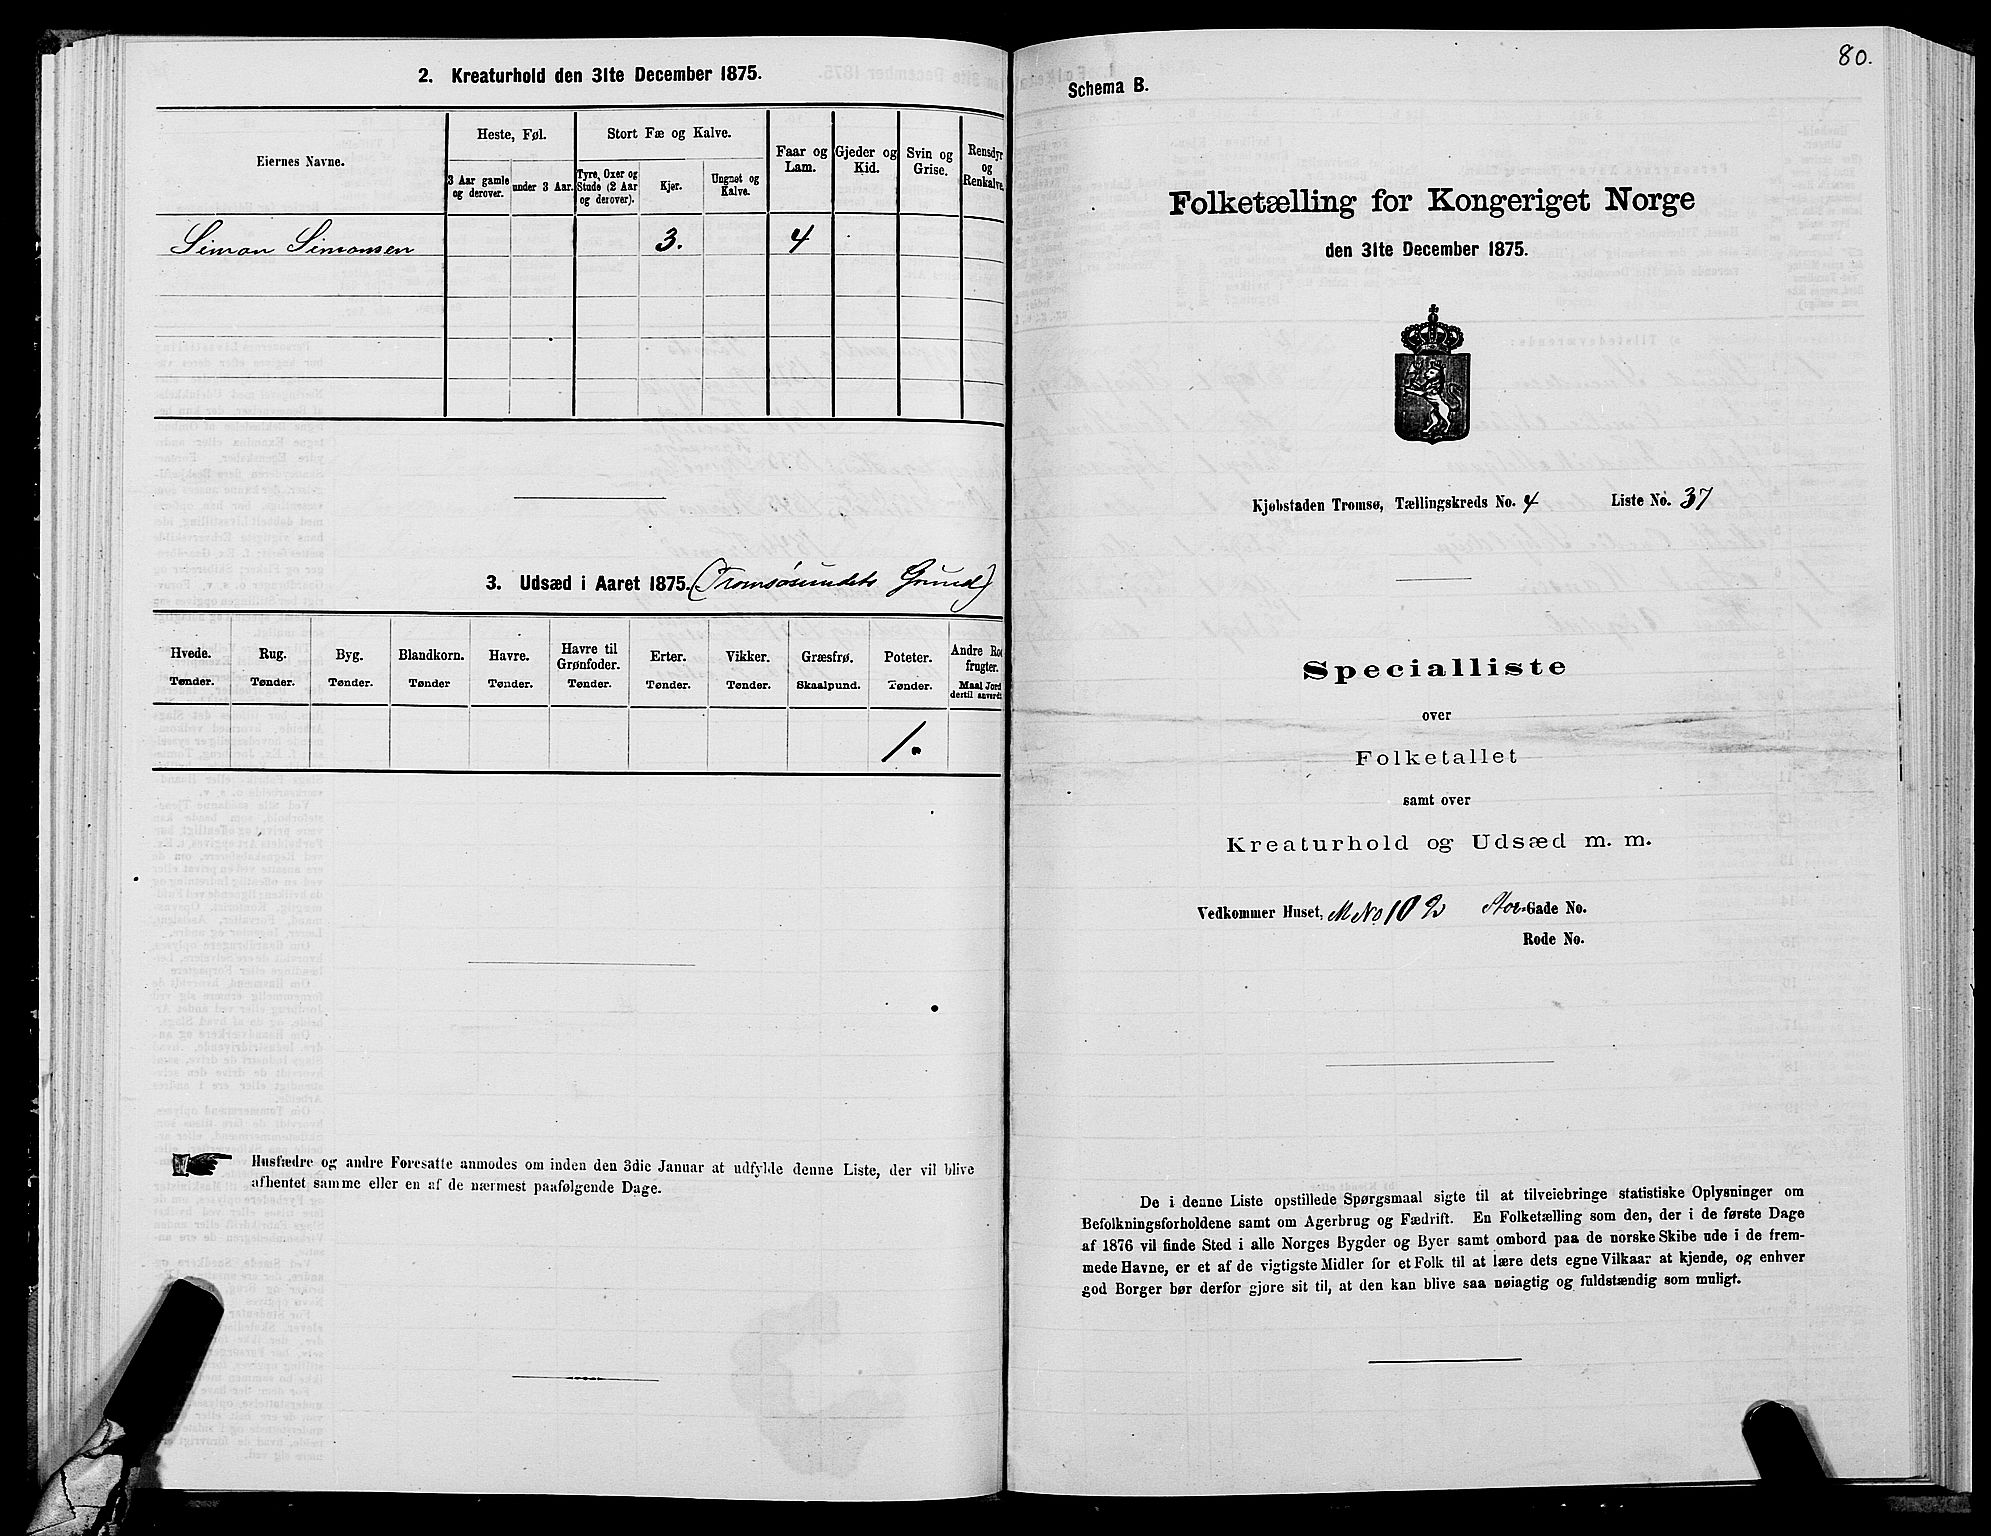 2. Kreaturhold den 31te December 1875.
Eiernes Navne.
Heste, Føl.
Stort Fæ og Kalve.
Faar og
Lam.
Gjeder og
Kid.
Svin og
Grise.
Rensdyr
og
Renkalve.
3 Aar gamle
og derover.
under 3 Aar.
Tyre, Oxer og
Stude (2 Aar
og derover).
Kjør.
Ungnøt og
Kalve.
Simon Simonsen 3. 4
3. Udsæd i Aaret 1875. (Tromsøsundets Grund)
Hvede.
Tønder.
Rug.
Tønder.
Byg.
Tønder.
Blandkorn.
Tønder
Havre.
Tønder.
Havre til
Grønfoder.
Tønder.
Erter.
Tønder.
Vikker.
Tønder.
Græsfrø.
Skaalpund.
Poteter.
Tønder.
Andre Rod
frugter.
Maal Jord
dertil anvendt.
1.
Husfædre og andre Foresatte anmodes om inden den 3die Januar at udfylde denne Liste, der vil blive
afhentet samme eller en af de nærmest paafølgende Dage.
80.
Schema B.
Folketælling for Kongeriget Norge
den 31te December 1875.
Kjøbstaden Tromsø, Tællingskreds No. 4 Liste No. 37
Specialliste
over
Folketallet
samt over
Kreaturhold og Udsæd m. m.
Vedkommer Huset, MNo 102 Stor-Gade No.
Rode No.
De i denne Liste opstillede Spørgsmaal sigte til at tilveiebringe statistiske Oplysninger om
Befolkningsforholdene samt om Agerbrug og Fædrift. En Folketælling som den, der i de første Dage
af 1876 vil finde Sted i alle Norges Bygder og Byer samt ombord paa de norske Skibe ude i de frem-
mede Havne, er et af de vigtigste Midler for et Folk til at lære dets egne Vilkaar at kjende, og enhver
god Borger bør derfor gjøre sit til, at den kan blive saa nøiagtig og fuldstændig som muligt.